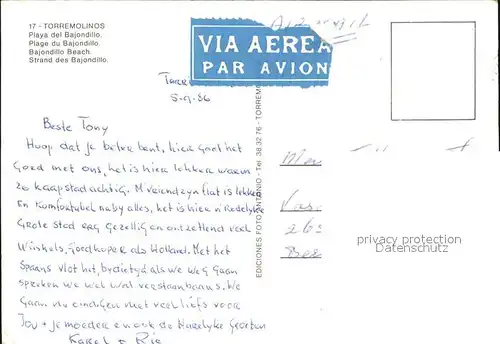 17 - TORREMOLINOS
Playa del Bajondillo.
Plage du Bajondillo.
Bajondillo Beach.
Strand des Bajondillo.
VIA AEREA
PAR AVION
5-9-86
Beste Tony
Hoop dat je beter bent, hier gaat het
Goed met ons, het is hier lekker warm
zo kaapstad achtig. M'vriendzyn flat is lekker
En Komfortabel naby alles, het is hier n' Redelyke
Grote stad erg gezellig en ontzettend veel
Winkels, Goedkoper als Holland. Met het
Spaans vlot het, bydietyd als we weg gaan
spreken we wel wat verstaanbaars. We
Gaan nu eindigen met veel liefs voor
Jou + je moeder en ook de Hartelyke Groeten
Karel + Rie
EDICIONES FOTO ANTONIO - Tel. 38 32 76 - TORREMO
privacy protection
ansichtskartenversand.com